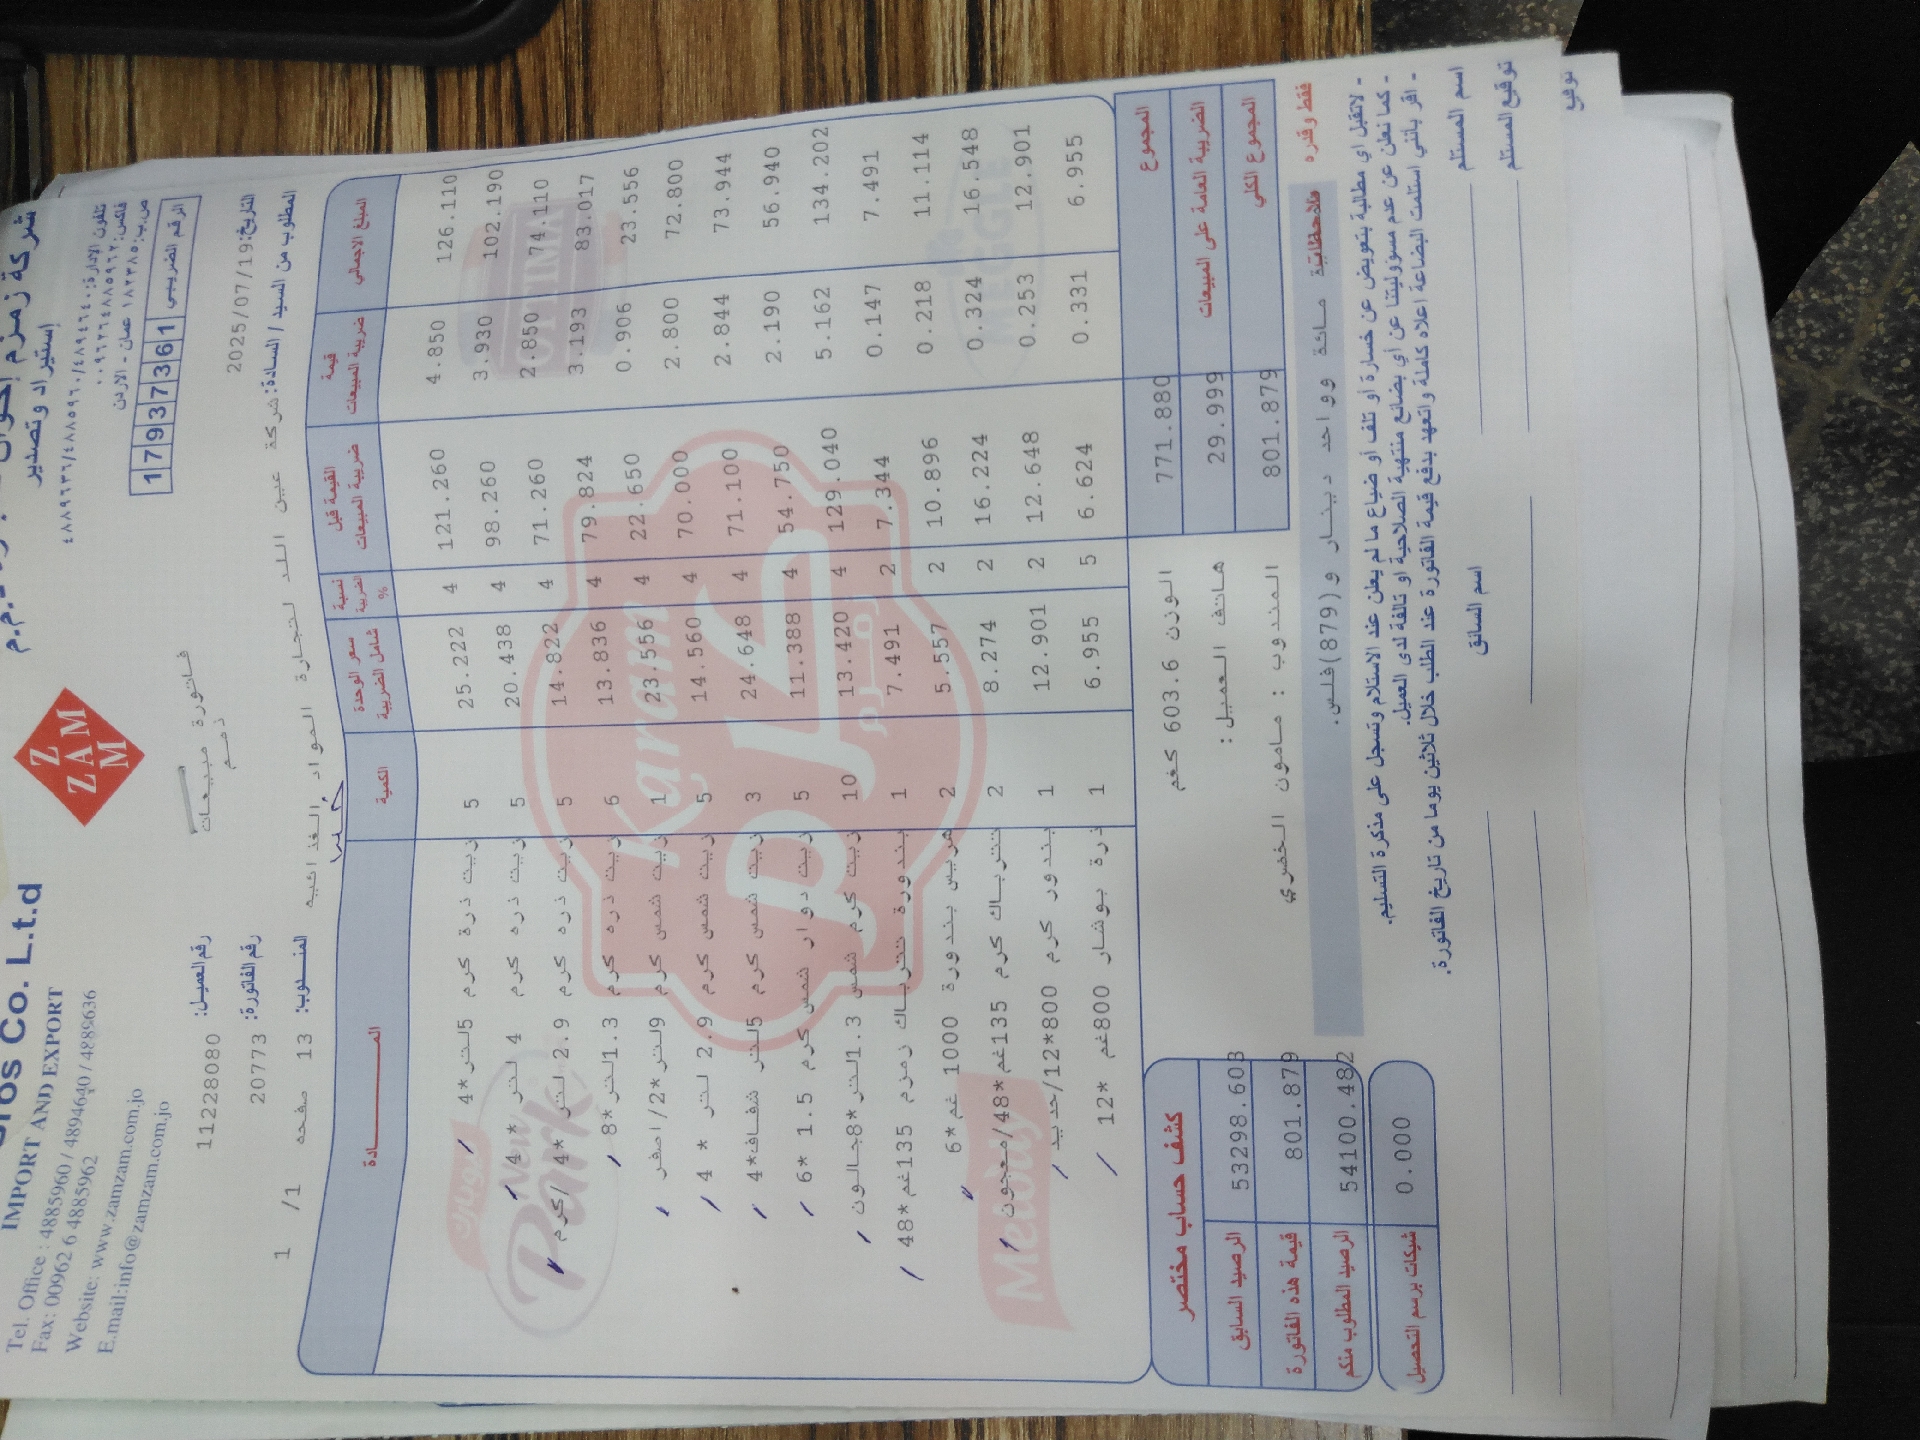 شركة زمزم إخوان
إستيراد وتصدير
تلفون الإدارة: ٤٨٩٤٦٤٠/٤٨٨٥٩٦٠/٤٨٨٩٦٣٦
فاكس: ٠٠٩٦٢٦٤٨٨٥٩٦٢
عمان - الاردن
الرقم الضريبي 17937361
Z ZAM M
Co. L.t.d
IMPORT AND EXPORT
Tel. Office : 4885960 / 4894640 / 4889636
Fax: 00962 6 4885962
Website: www.zamzam.com.jo
E.mail:info@zamzam.com.jo
فاتورة مبيعات
ذمم
رقم العميل: 11228080
التاريخ: 2025/07/19
رقم الفاتورة: 20773
المطلوب من السيد / السادة: شركة عين اللد لتجارة المواد الغذائيه
المندوب: 13 صفحه 1/ 1
المادة الكمية سعر الوحدة شامل الضريبة نسبة الضريبة % القيمة قبل ضريبة المبيعات قيمة ضريبة المبيعات المبلغ الاجمالي
زيت ذرة كرم 5لتر*4 5 25.222 4 121.260 4.850 126.110
زيت ذره كرم 4 لتر *4 5 20.438 4 98.260 3.930 102.190
زيت ذره كرم 2.9 لتر *4/كرم 5 14.822 4 71.260 2.850 74.110
زيت ذره كرم 1.3لتر*8 6 13.836 4 79.824 3.193 83.017
زيت شمس كرم 9لتر*2/اصفر 1 23.556 4 22.650 0.906 23.556
زيت شمس كرم 2.9 لتر * 4 5 14.560 4 70.000 2.800 72.800
زيت شمس كرم 5لتر شفاف*4 3 24.648 4 71.100 2.844 73.944
زيت دوار شمس كرم 1.5 *6 5 11.388 4 54.750 2.190 56.940
زيت كرم شمس 1.3لتر*8جالون 10 13.420 4 129.040 5.162 134.202
بندورة تتراباك زمزم 135غم*48 1 7.491 2 7.344 0.147 7.491
هريس بندورة 1000 غم*6 2 5.557 2 10.896 0.218 11.114
تترباك كرم 135غم*48/معجون 2 8.274 2 16.224 0.324 16.548
بندور كرم 800*12/حديد 1 12.901 2 12.648 0.253 12.901
ذرة بوشار 800غم *12 1 6.955 5 6.624 0.331 6.955
Karam
كرم
زمزم
New Park
Melody
MEGGLE
المجموع 771.880
الضريبة العامة على المبيعات 29.999
المجموع الكلي 801.879
الوزن 603.6 كغم
هاتف العميل :
المندوب : مامون الخضري
كشف حساب مختصر
الرصيد السابق 53298.603
قيمة هذه الفاتورة 801.879
الرصيد المطلوب منكم 54100.482
شيكات برسم التحصيل 0.000
فقط وقدره مائة وواحد دينار و(879)فلس.
- لاتقبل اي مطالبة بتعويض عن خسارة أو تلف أو ضياع ما لم يعلن عند الاستلام وتسجل على مذكرة التسليم.
- كما نعلن عن عدم مسؤوليتنا عن أي بضائع منتهية الصلاحية او تالفة لدى العميل.
- اقر بأنني استلمت البضاعة اعلاه كاملة واتعهد بدفع قيمة الفاتورة عند الطلب خلال ثلاثين يوما من تاريخ الفاتورة.
اسم المستلم
اسم السائق
توقيع المستلم
توقيع